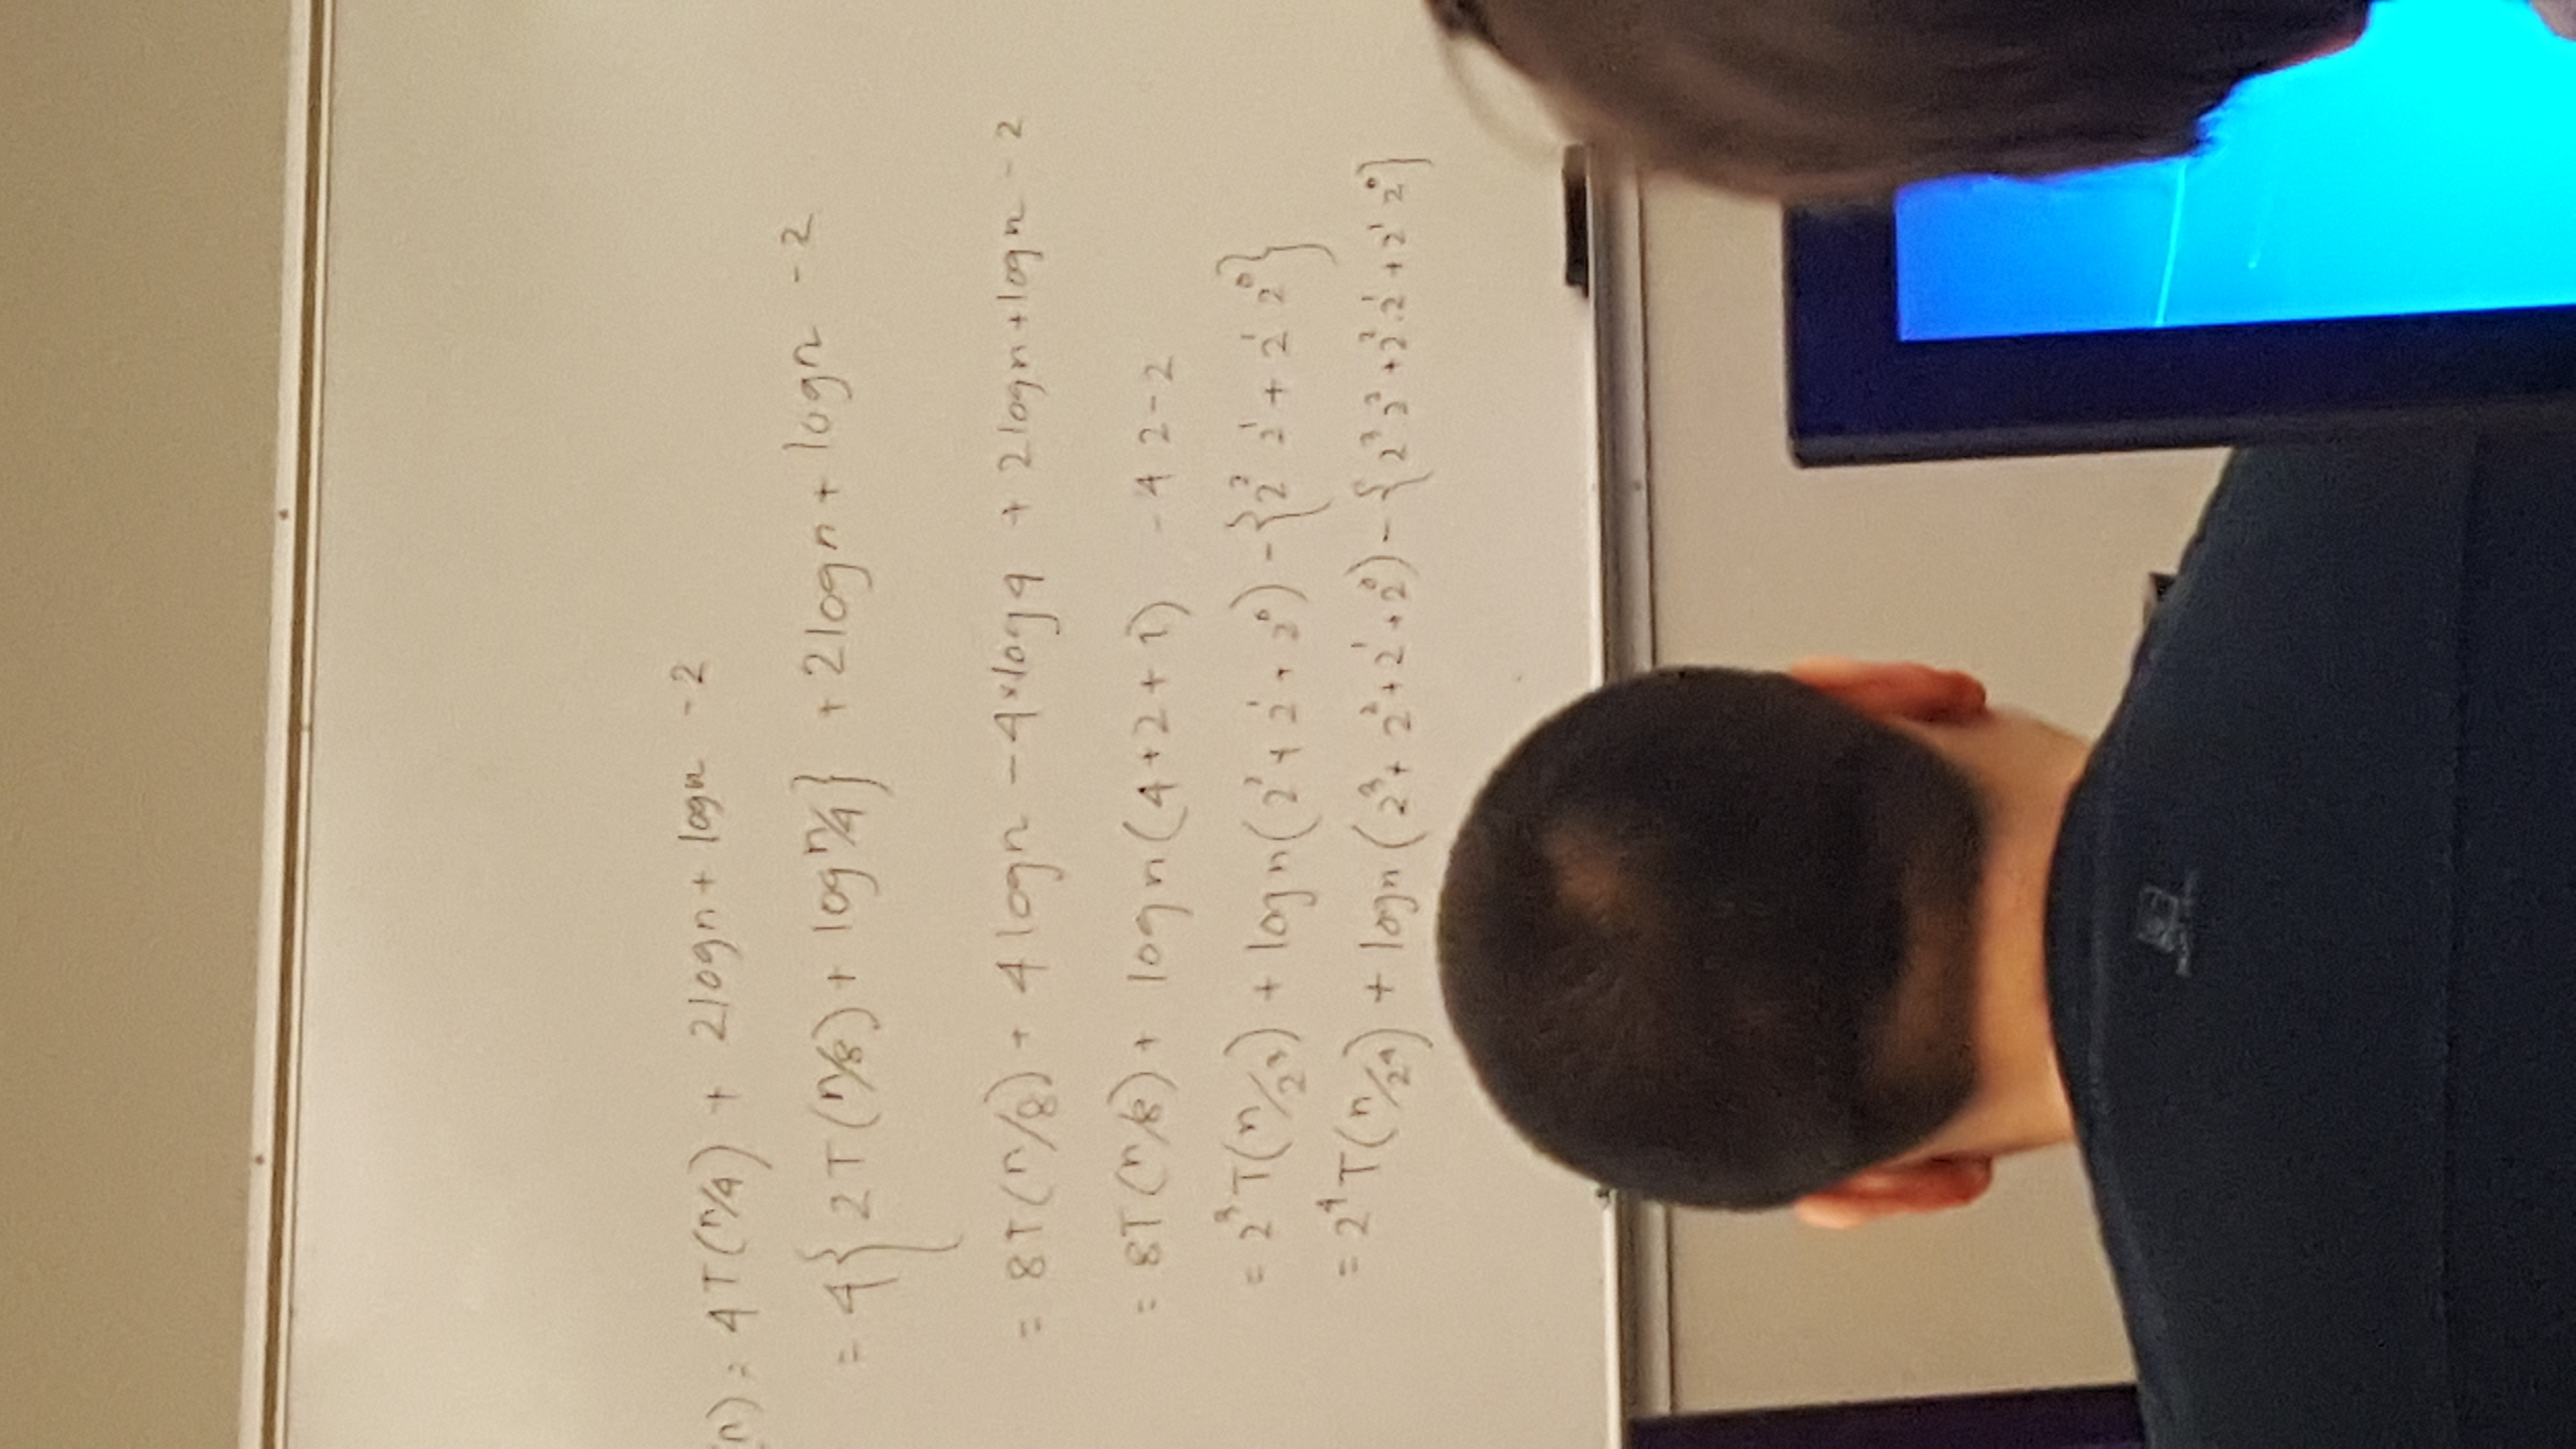 (n) = 4T(n/4) + 2logn + logn - 2
= 4{2T(n/8) + log n/4} + 2logn + logn - 2
= 8T(n/8) + 4 logn - 4×log4 + 2logn + logn - 2
= 8T(n/8) + logn(4+2+1) - 4 2 - 2
= 2³T(n/2³) + logn(2² + 2¹ + 2⁰) - {2² 2¹ + 2¹ 2⁰}
= 2⁴T(n/2⁴) + logn(2³ + 2² + 2¹ + 2⁰) - {2³ 2² + 2² . 2¹ + 2¹ 2⁰}